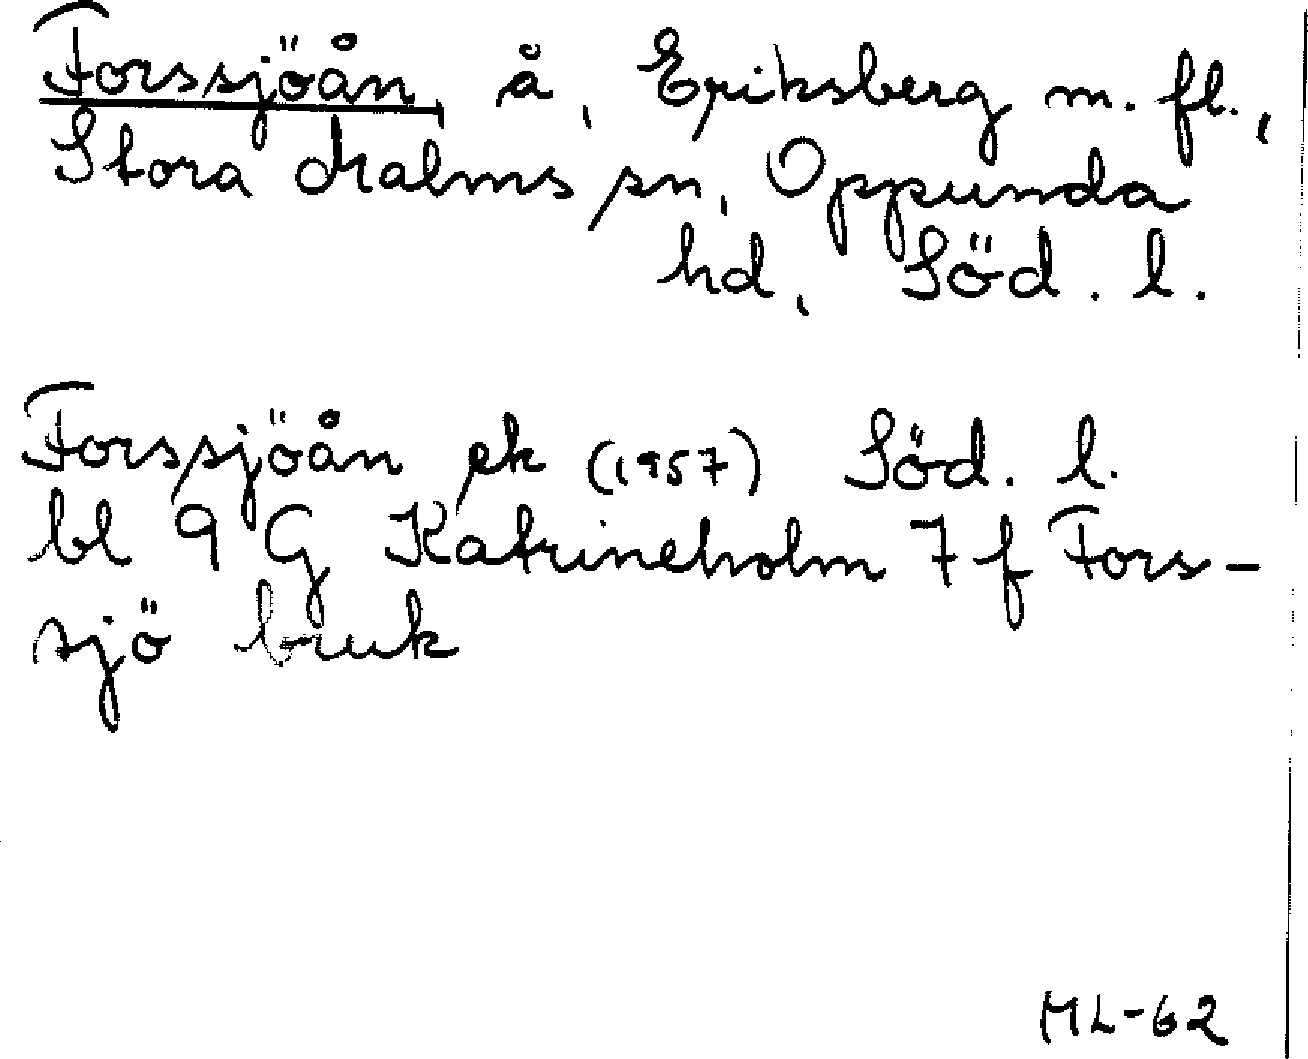 Forssjöån, å, Eriksberg m. fl.,
Stora Malms sn, Oppunda
hd, Söd. l.
Forssjöån ek (1957) Söd. l.
bl 9 G Katrineholm 7 f Fors-
sjö bruk
ML-62